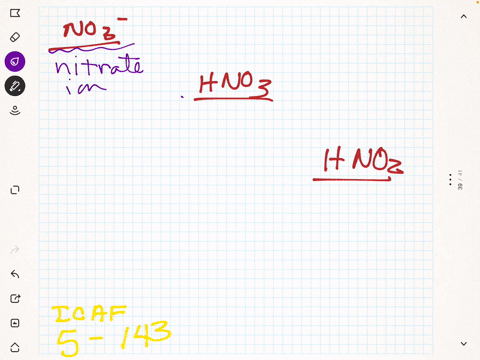 NO₃⁻
nitrate
ion
HNO₃
HNO₂
ICAF
5-143
39 / 41